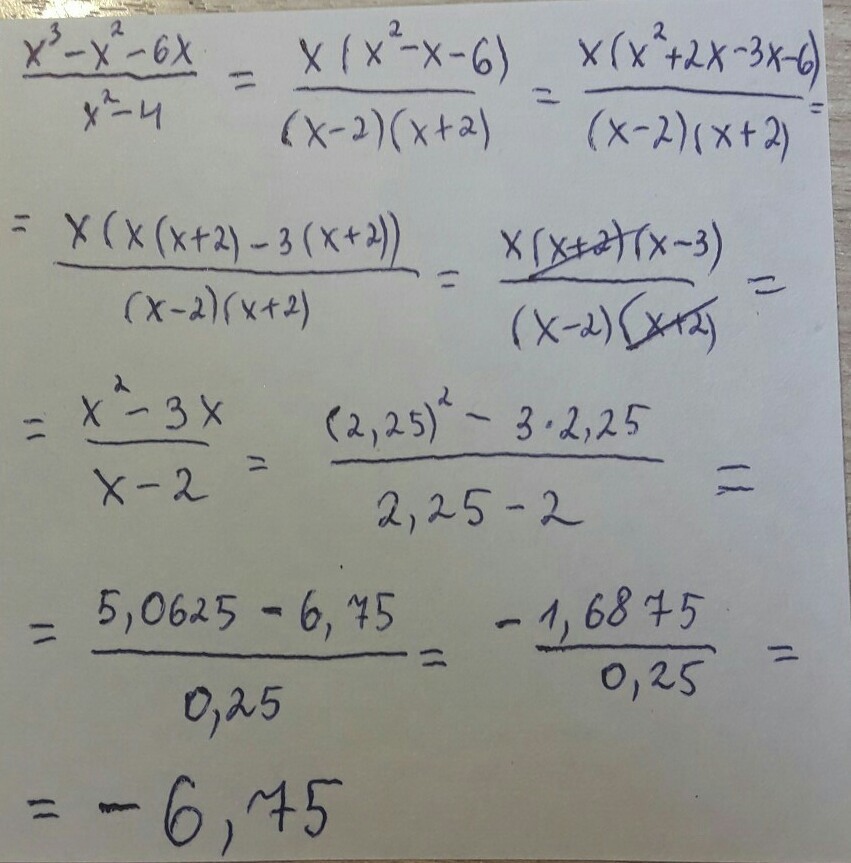 x³-x²-6x / x²-4 = x(x²-x-6) / (x-2)(x+2) = x(x²+2x-3x-6) / (x-2)(x+2) =
= x(x(x+2)-3(x+2)) / (x-2)(x+2) = x(x+2)(x-3) / (x-2)(x+2) =
= x²-3x / x-2 = (2,25)²-3·2,25 / 2,25-2 =
= 5,0625-6,75 / 0,25 = -1,6875 / 0,25 =
= -6,75